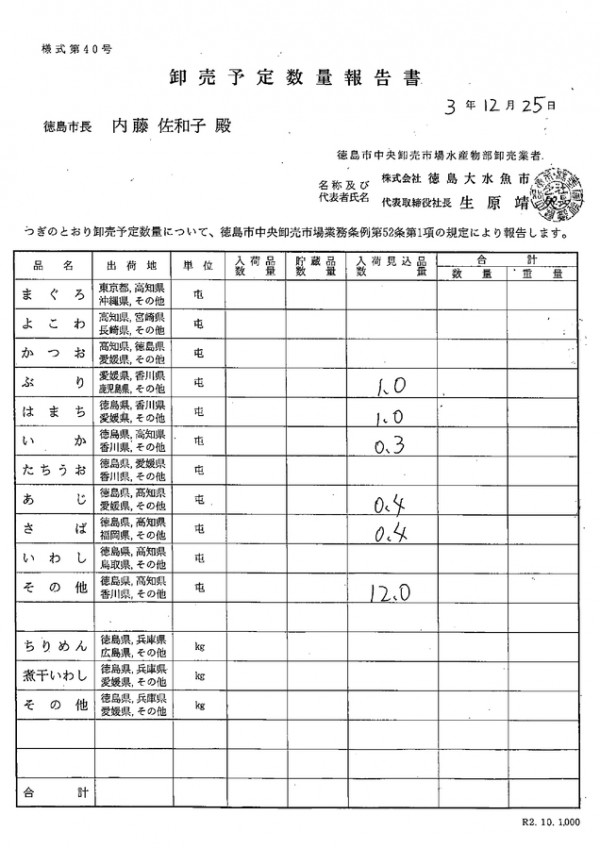 様式第40号
卸売予定数量報告書
3年12月25日
徳島市長 内藤 佐和子 殿
徳島市中央卸売市場水産物部卸売業者
名称及び 株式会社 徳島大水魚市
代表者氏名 代表取締役社長 生原 靖
つぎのとおり卸売予定数量について、徳島市中央卸売市場業務条例第52条第1項の規定により報告します。
品名 出荷地 単位 入荷品数量 貯蔵品数量 入荷見込品数量 合計
数量 重量
まぐろ 東京都, 高知県 屯
沖縄県, その他
よこわ 高知県, 宮崎県 屯
長崎県, その他
かつお 高知県, 徳島県 屯
愛媛県, その他
ぶり 愛媛県, 香川県 屯 1.0
鹿児島県, その他
はまち 徳島県, 香川県 屯 1.0
愛媛県, その他
いか 徳島県, 高知県 屯 0.3
香川県, その他
たちうお 徳島県, 愛媛県 屯
香川県, その他
あじ 徳島県, 高知県 屯 0.4
愛媛県, その他
さば 徳島県, 高知県 屯 0.4
福岡県, その他
いわし 徳島県, 高知県 屯
鳥取県, その他
その他 徳島県, 高知県 屯 12.0
香川県, その他
ちりめん 徳島県, 兵庫県 kg
広島県, その他
煮干いわし 徳島県, 兵庫県 kg
愛媛県, その他
その他 徳島県, 兵庫県 kg
愛媛県, その他
合計
R2. 10. 1,000